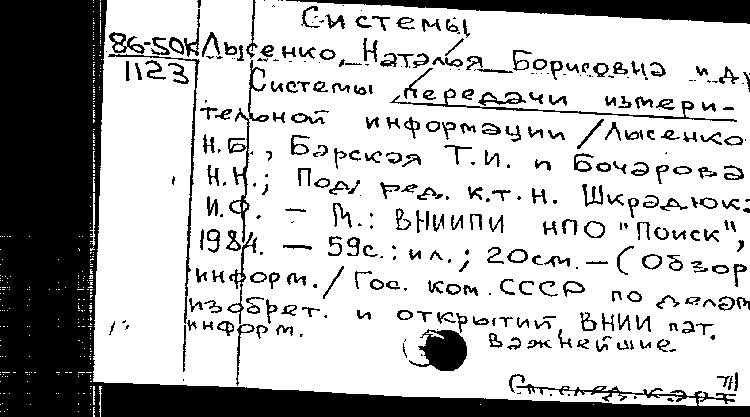 Системы
86-50к Лысенко, Наталья Борисовна и др
1123
Системы передачи измери-
тельной информации / Лысенко
Н.Б., Барская Т.И. и Бочарова
Н.Н.; Под ред. к.т.н. Шкрадюка
И.Ф. – М.: ВНИИПИ НПО "Поиск",
1984. – 59с.: ил.; 20см. – (Обзор
информ. / Гос. ком. СССР по делам
изобрет. и открытий, ВНИИ пат.
информ.
Важнейшие
См. след. карт